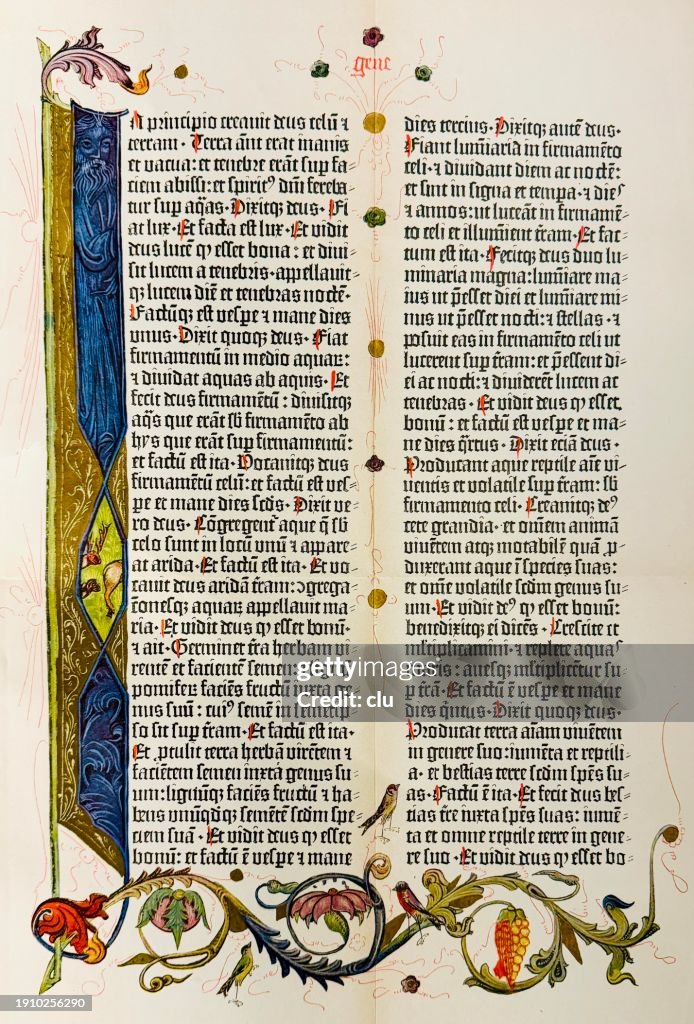 gene
N principio creauit deus celū ⁊
terram. Terra autē erat inanis
et vacua: et tenebre erāt sup faciem
abissi: et spiritꝰ dn̄i ferebatur
sup aq̄as. Dixitqꝫ deus. Fiat
lux. Et facta est lux. Et vidit
deus lucē ꝙ esset bona: et diuisit
lucem a tenebris. appellauitqꝫ
lucem diē et tenebras noctē.
Factūqꝫ est vespe ⁊ mane dies
vnus. Dixit quoqꝫ deus. Fiat
firmamentū in medio aquaꝝ:
⁊ diuidat aquas ab aquis. Et
fecit deus firmamētū: diuisitqꝫ
aq̄s que erāt sb̄ firmamēto ab
hijs que erāt sup firmamentū:
et factū est ita. Vocauitqꝫ deus
firmamentū celū: et factū est vespe
et mane dies scd̄s. Dixit vero
deus. Cōgregent᷑ aque q̄ sb̄
celo sunt in locū vnū ⁊ appareat
arida. Et factū est ita. Et vocauit
deus aridā t̄ram: ↄgregationesqꝫ
aquaꝝ appellauit maria.
Et vidit deus ꝙ esset bonū.
⁊ ait. Germinet t̄ra herbam virentē
et facientē semen
pomiferꝝ faciēs fructū iuxta genus
suū: cuiꝰ semē in semetip̄so
sit sup t̄ram. Et factū est ita.
Et ꝓtulit terra herbā virētem ⁊
faciētem semen iuxta genus suum:
lignūqꝫ faciēs fructū ⁊ habens
vnūqdqꝫ sementē scd̄m speciem
suā. Et vidit deus ꝙ esset
bonū: et factū ē vespe ⁊ mane
dies tercius. Dixitqꝫ autē deus.
Fiant luminaria in firmamēto
celi. ⁊ diuidant diem ac noctē:
et sint in signa et tempa. ⁊ dieſ
⁊ annos: ut luceāt in firmamēto
celi et illumīent t̄ram. Et factum
est ita. Fecitqꝫ deus duo luminaria
magna: lumīare maius
ut p̄esset diei et lumīare minus
ut p̄esset nocti: ⁊ stellas. ⁊
posuit eas in firmamēto celi ut
lucerent sup t̄ram: et p̄essent diei
ac nocti: ⁊ diuiderēt lucem ac
tenebras. Et vidit deus ꝙ esset
bonū: et factū est vespe et mane
dies q̄rtus. Dixit eciā deus.
Producant aque reptile aīe viuentis
et volatile sup t̄ram: sb̄
firmamento celi. Creauitqꝫ deꝰ
cete grandia. et om̄em animā
viuentem atqꝫ motabilē quā ꝓduxerant
aque ī species suas:
et om̄e volatile scd̄m genus suum.
Et vidit deꝰ ꝙ esset bonū:
benedixitqꝫ ei dicēs. Crescite et
mltiplicamini. ⁊ replete aquas
maris: auesqꝫ mltiplicētur sup
t̄rā. Et factū ē vespe et mane
dies q̄ntus. Dixit quoqꝫ deus.
Producat terra aīam viuentem
in genere suo: iumēta et reptilia.
et bestias terre scd̄m sp̄es suas.
Factū ē ita. Et fecit deus bestias
t̄re iuxta sp̄es suas: iumēta
et omne reptile terre in genere
suo. Et vidit deus ꝙ esset bo
gettyimages
Credit: clu
1910256290